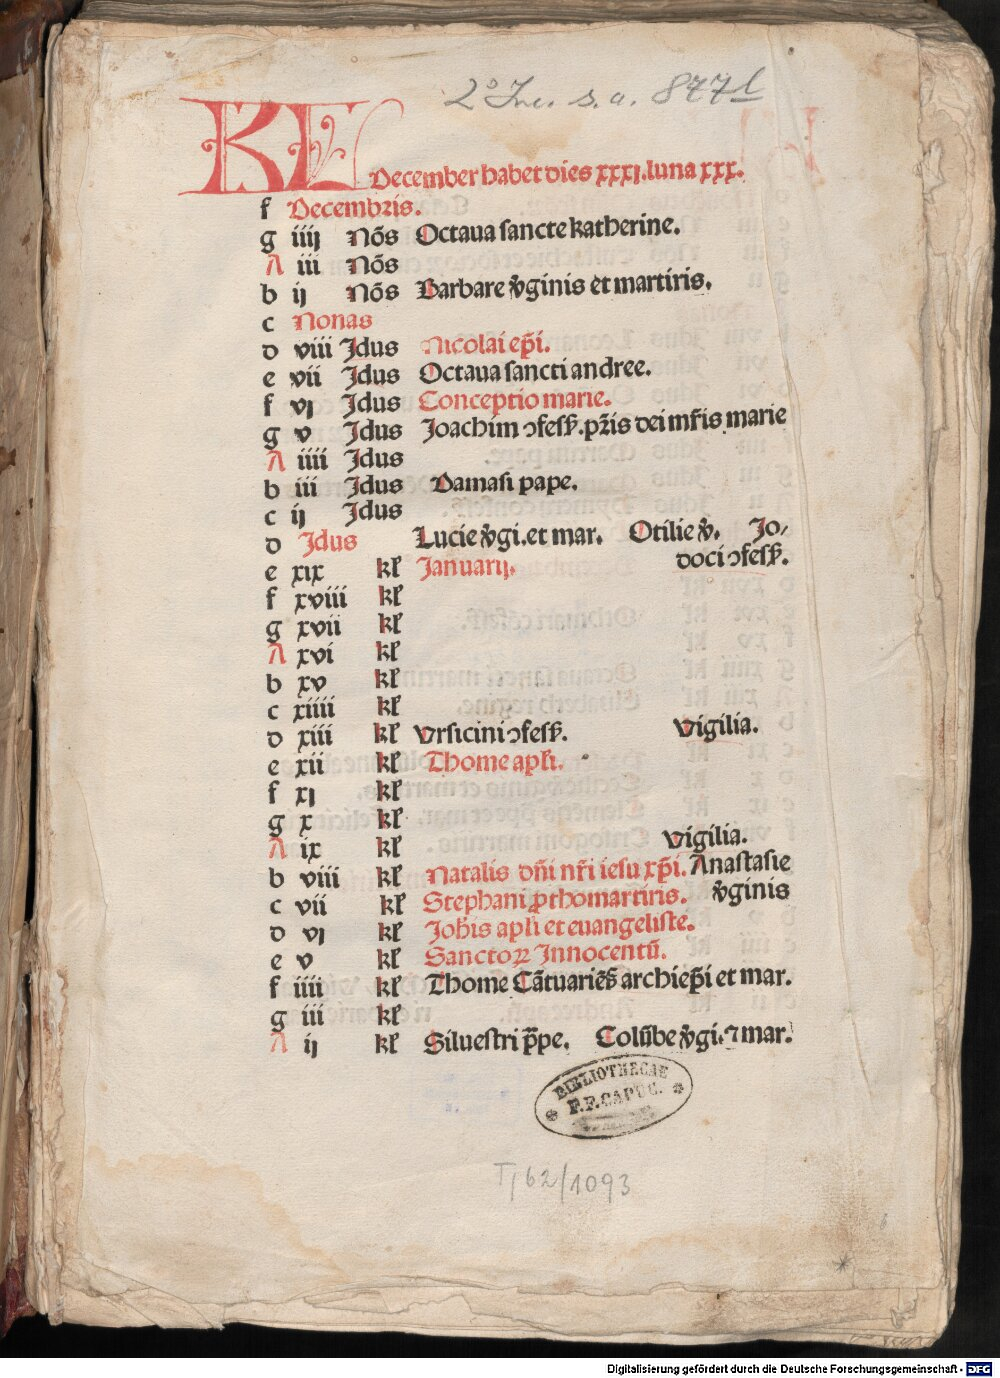 2° Inc. s. a. 877 l
KL December habet dies xxxj. luna xxx.
f Decembris.
g iiij Nōs Octaua sancte katherine.
A iii Nōs
b ij Nōs Barbare v̄ginis et martiris.
c Nonas
d viii Jdus Nicolai ep̄i.
e vii Jdus Octaua sancti andree.
f vj Jdus Conceptio marie.
g v Jdus Joachim ↄfesẜ. pr̄is dei mr̄is marie
A iiii Jdus
b iii Jdus Damasi pape.
c ij Jdus
d Jdus Lucie v̄gi. et mar. Otilie v̄. Jo-
e xix kl̓ Januarij. doci ↄfesẜ.
f xviii kl̓
g xvii kl̓
A xvi kl̓
b xv kl̓
c xiiii kl̓
d xiii kl̓ Vrsicini ↄfesẜ. Vigilia.
e xii kl̓ Thome apl̓i.
f xj kl̓
g x kl̓
A ix kl̓ Vigilia.
b viii kl̓ Natalis dn̄i nr̄i iesu xp̄i. Anastasie
c vii kl̓ Stephani ꝓthomartiris. v̄ginis
d vj kl̓ Joh̄is apl̓i et euangeliste.
e v kl̓ Sanctoꝝ Innocentū.
f iiii kl̓ Thome Cātuariēs̄ archiep̄i et mar.
g iii kl̓
A ij kl̓ Siluestri p̄pe. Colūbe v̄gi. ⁊ mar.
BIBLIOTHECAE
F.F. CAPUC.
T/62/1093
6
Digitalisierung gefördert durch die Deutsche Forschungsgemeinschaft - DFG